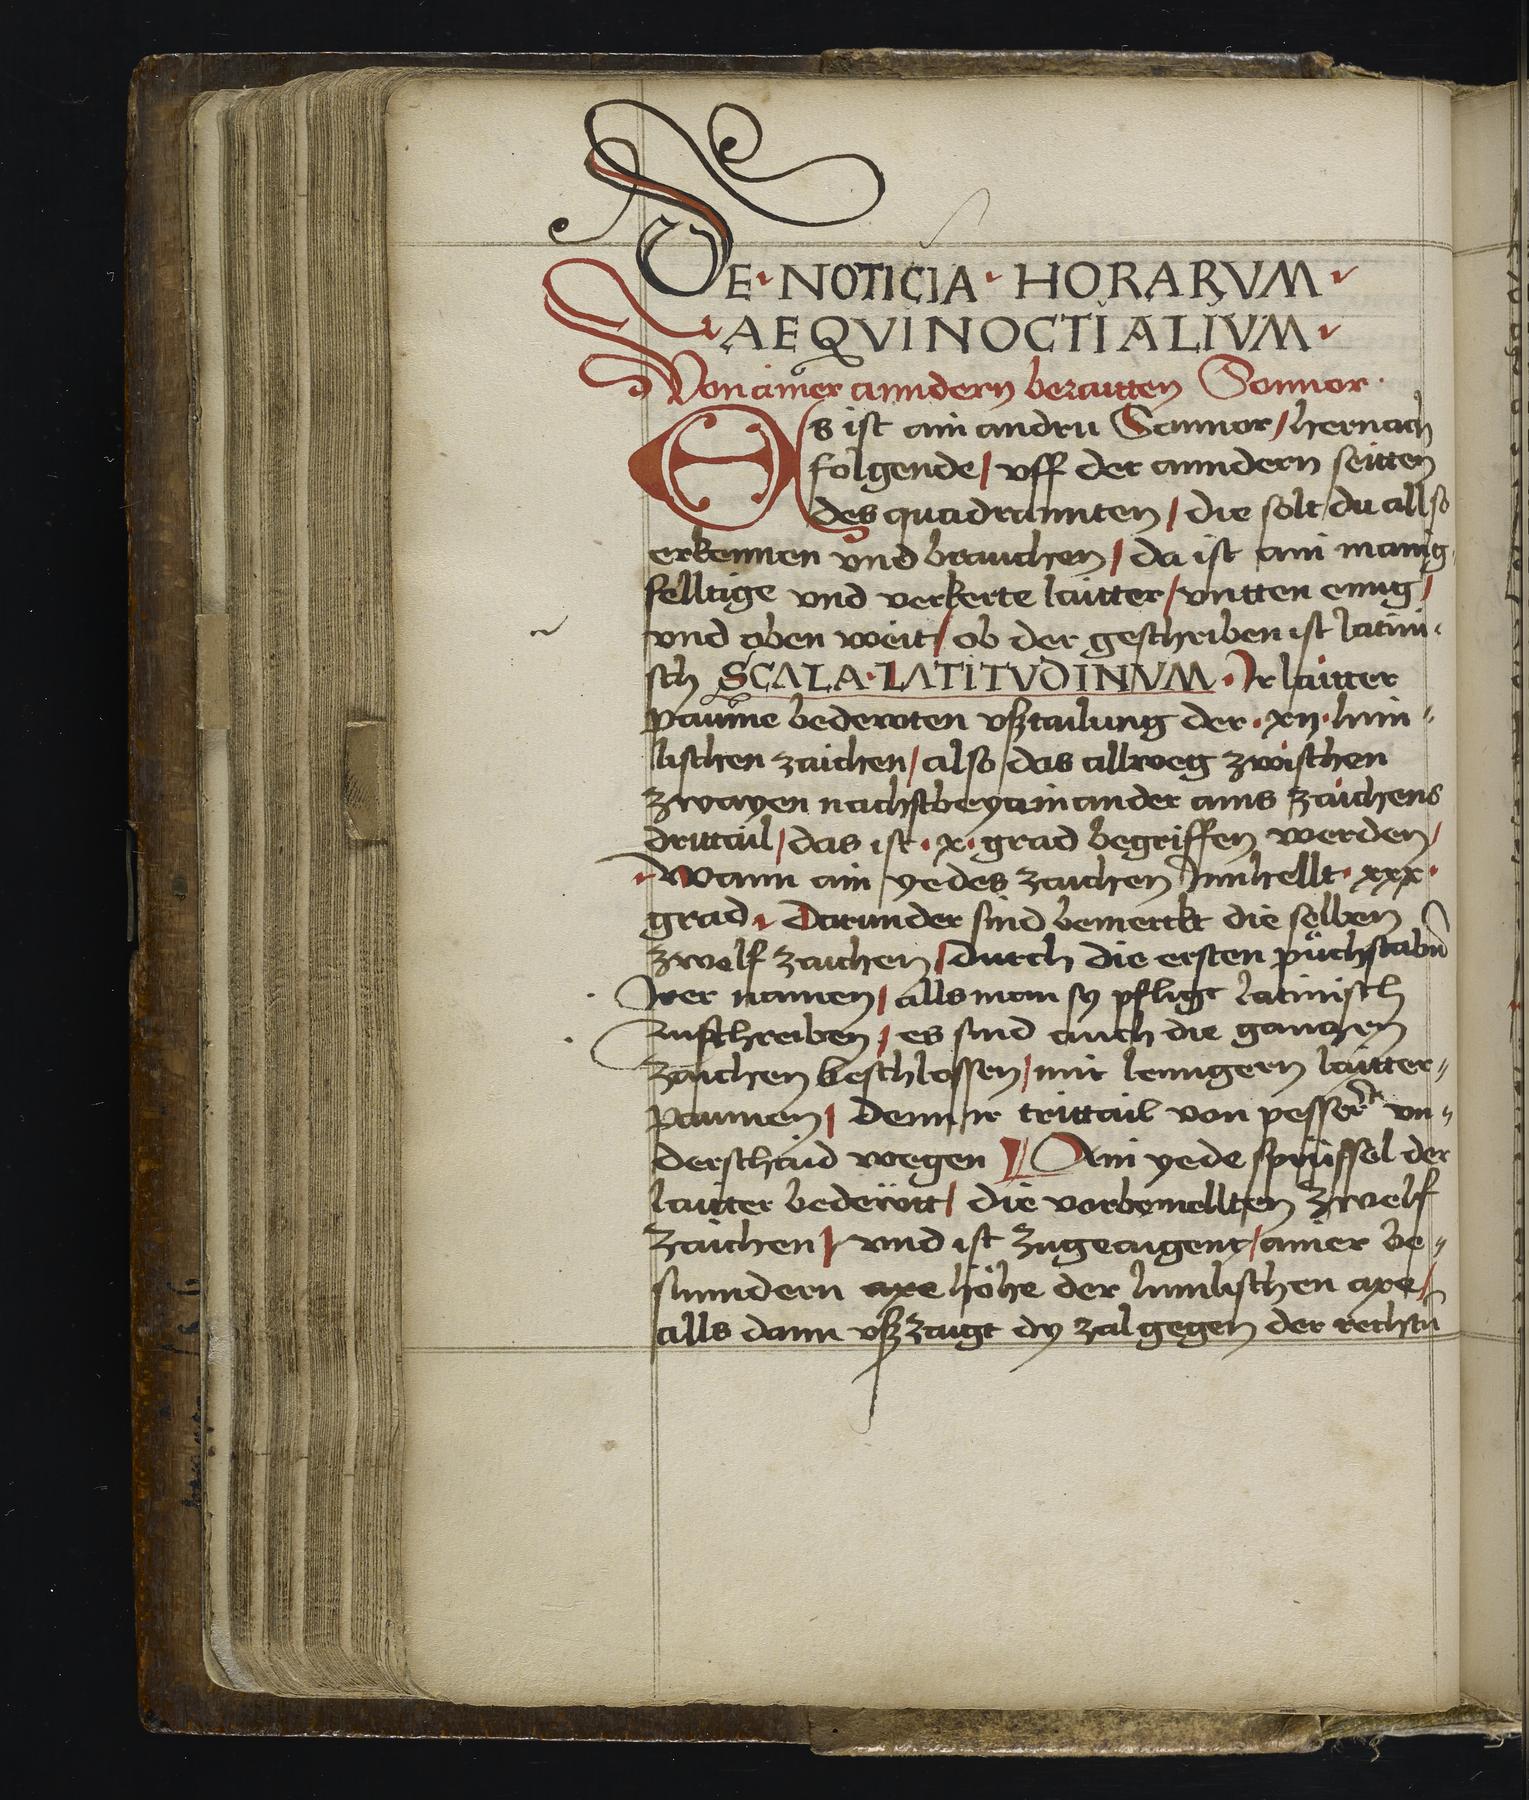 DE · NOTICIA · HORARVM ·
· AEQVINOCTIALIVM ·
Von ainer anndern beraitten Sonnor ·
Es ist ain andru Sonnor / hernach
folgende / vff der anndern seitten
des quadrannten / die solt du allso
erkennen vnd brauchen / da ist ain manig
felltige vnd verkerte laitter / vntten enng /
vnd oben weit / ob der geschriben ist latini
sch SCALA · LATITVDINVM · Ir laitter
paume bedewten vßtailung der · xij · himˀ
lischen zaichen / also das allweg zwischen
zwayen nachstbeyainander ains zaichens
drittail / das ist · x · grad begriffen werden /
· Wann ain yedes zaichen Innhellt · xxx ·
grad · Darunder sind bemerckt die selben
zwelf zaichen / durch die ersten půchstabn̄
Irer namen / alls man sy pfligt latinisch
zuschreiben / es sind auch die ganczen
zaichen beschlossen / mit lenngern laitter〃
paumen / denn ir trittail von pesser vn〃
derschaid wegen ¶ Ain yede sprüssel der
laitter bedewtt / die vorbemellten zwelf
zaichen / vnd ist zugeaigent / ainer be〃
sunndern axe höhe der himlischen axe /
alls dann vßzaigt dy zal gegen der rechtn̄